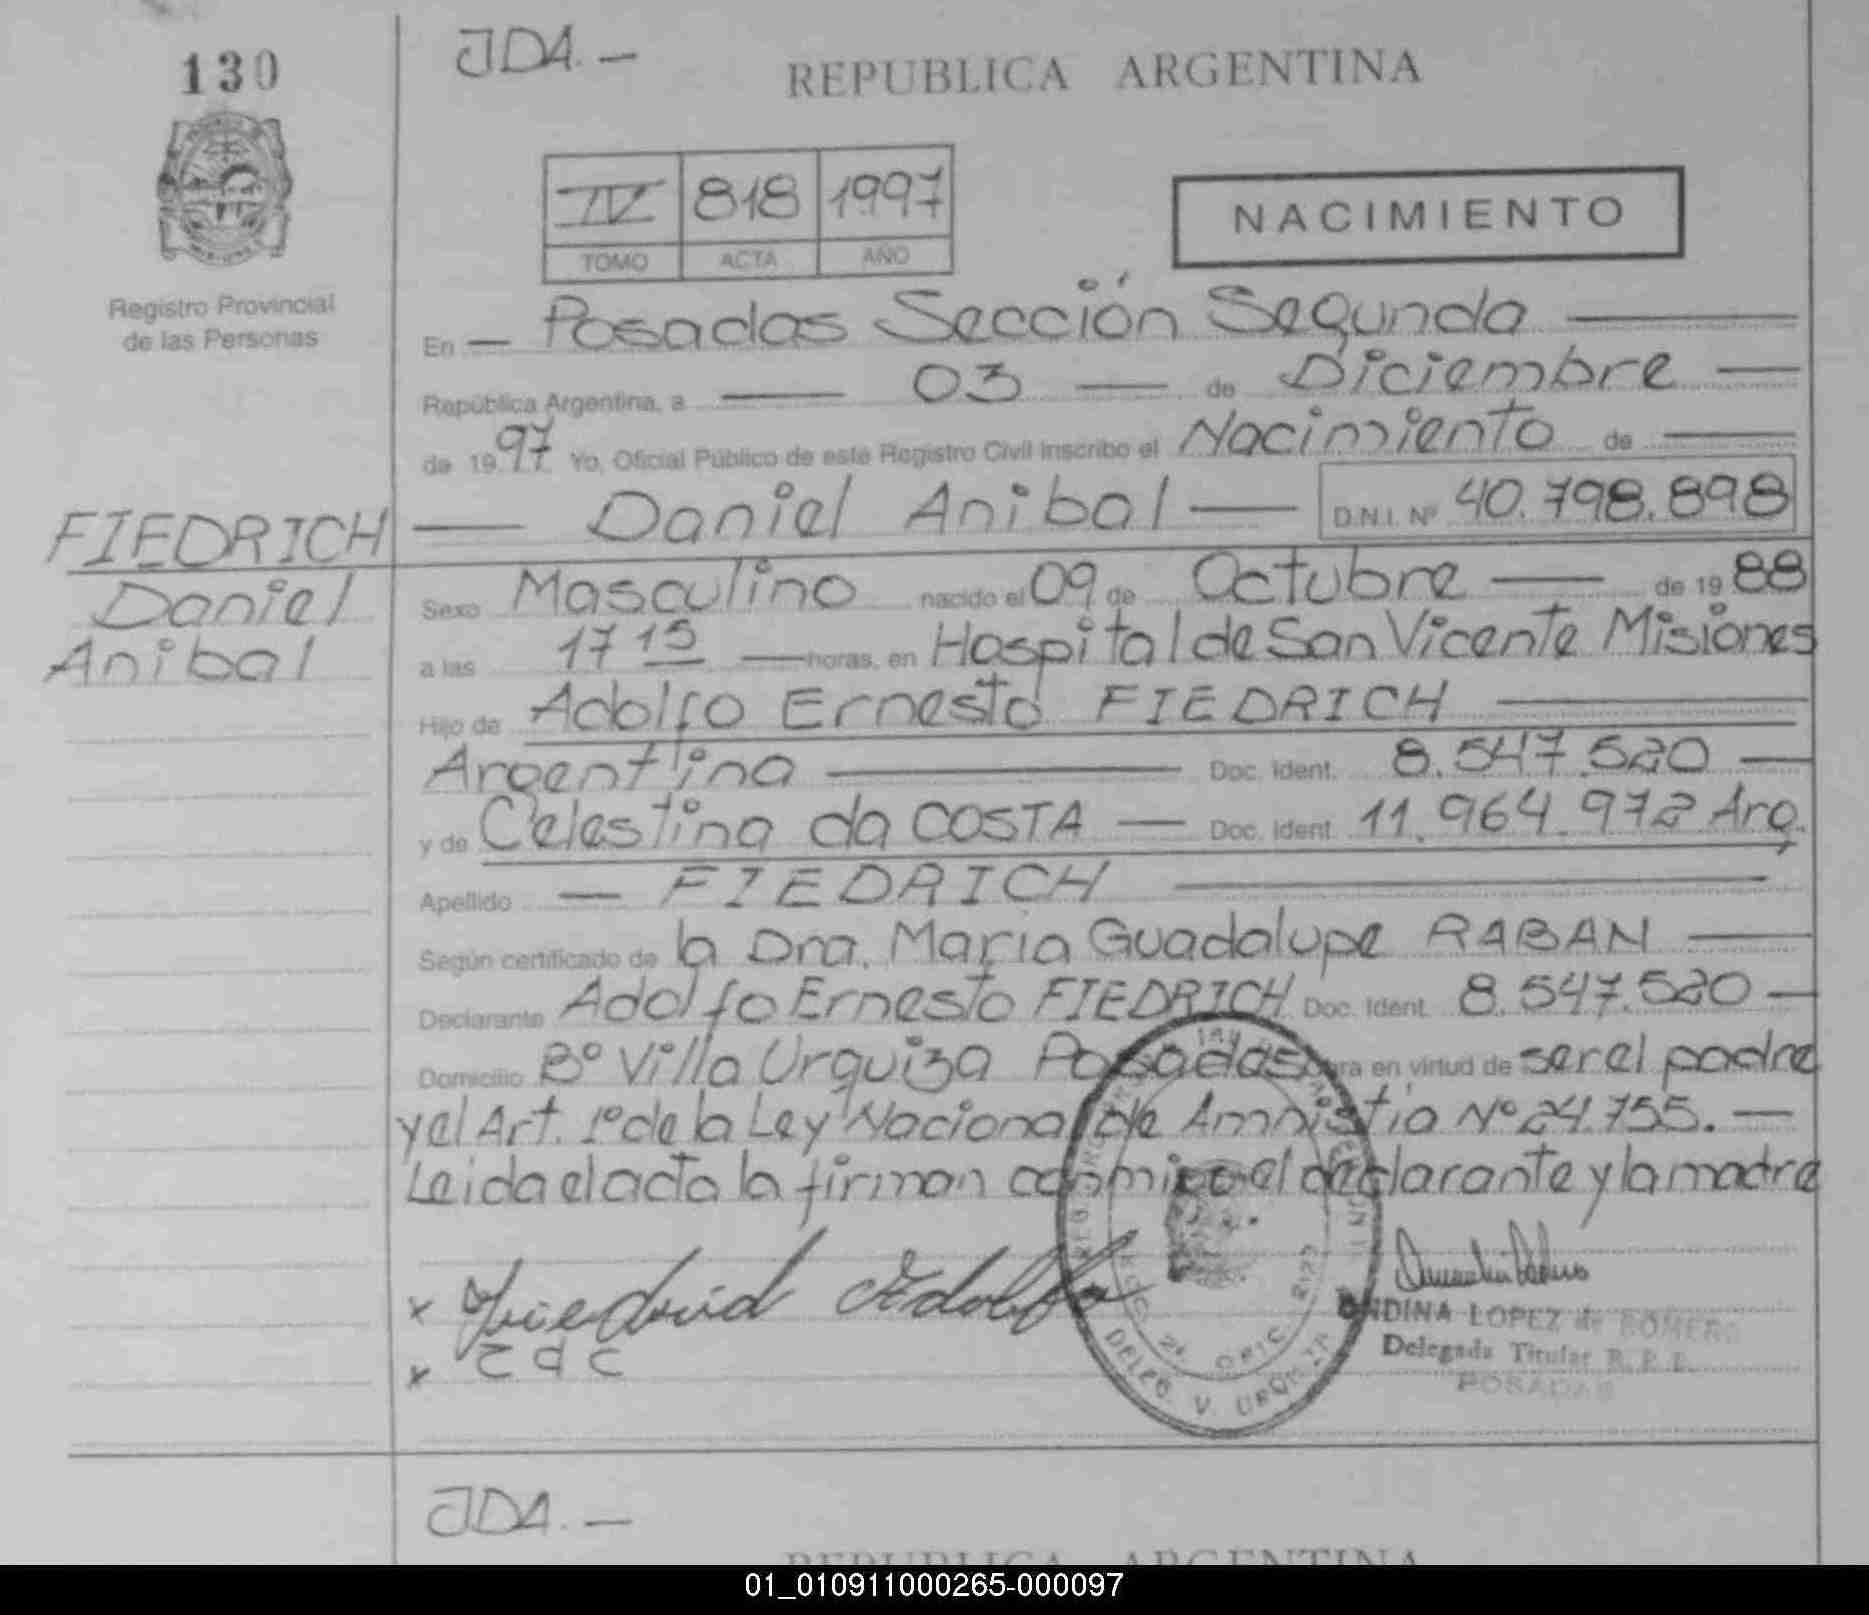 130
JDA.—
REPUBLICA ARGENTINA
IV 818 1997
TOMO ACTA AÑO
NACIMIENTO
Registro Provincial
de las Personas
En — Posadas Sección Segunda —
República Argentina, a — 03 — de Diciembre —
de 1997 Yo, Oficial Público de este Registro Civil inscribo el Nacimiento de —
FIEDRICH
Daniel
Anibal
— Daniel Anibal — D.N.I. Nº 40.798.898
Sexo Masculino nacido el 09 de Octubre — de 1988
a las 17 15 — horas, en Hospital de San Vicente Misiones
Hijo de Adolfo Ernesto FIEDRICH —
Argentina — Doc. Ident. 8.547.520 —
y de Celestina da COSTA — Doc. Ident. 11.964.972 Arg.
Apellido — FIEDRICH —
Según certificado de la Dra. Maria Guadalupe RABAN —
Declarante Adolfo Ernesto FIEDRICH Doc. Ident. 8.547.520 —
Domicilio Bº Villa Urquiza Posadas en virtud de ser el padre
y el Art. 1º de la Ley Nacional de Amnistia Nº 24.755. —
Leida el acta la firman conmigo el declarante y la madre
x Friedrich Adolfo
x C d C
ONDINA LOPEZ de ROMERO
Delegada Titular R. P. P.
POSADAS
DELEG. V. URQUIZA
JDA.—
REPUBLICA ARGENTINA
01_010911000265-000097